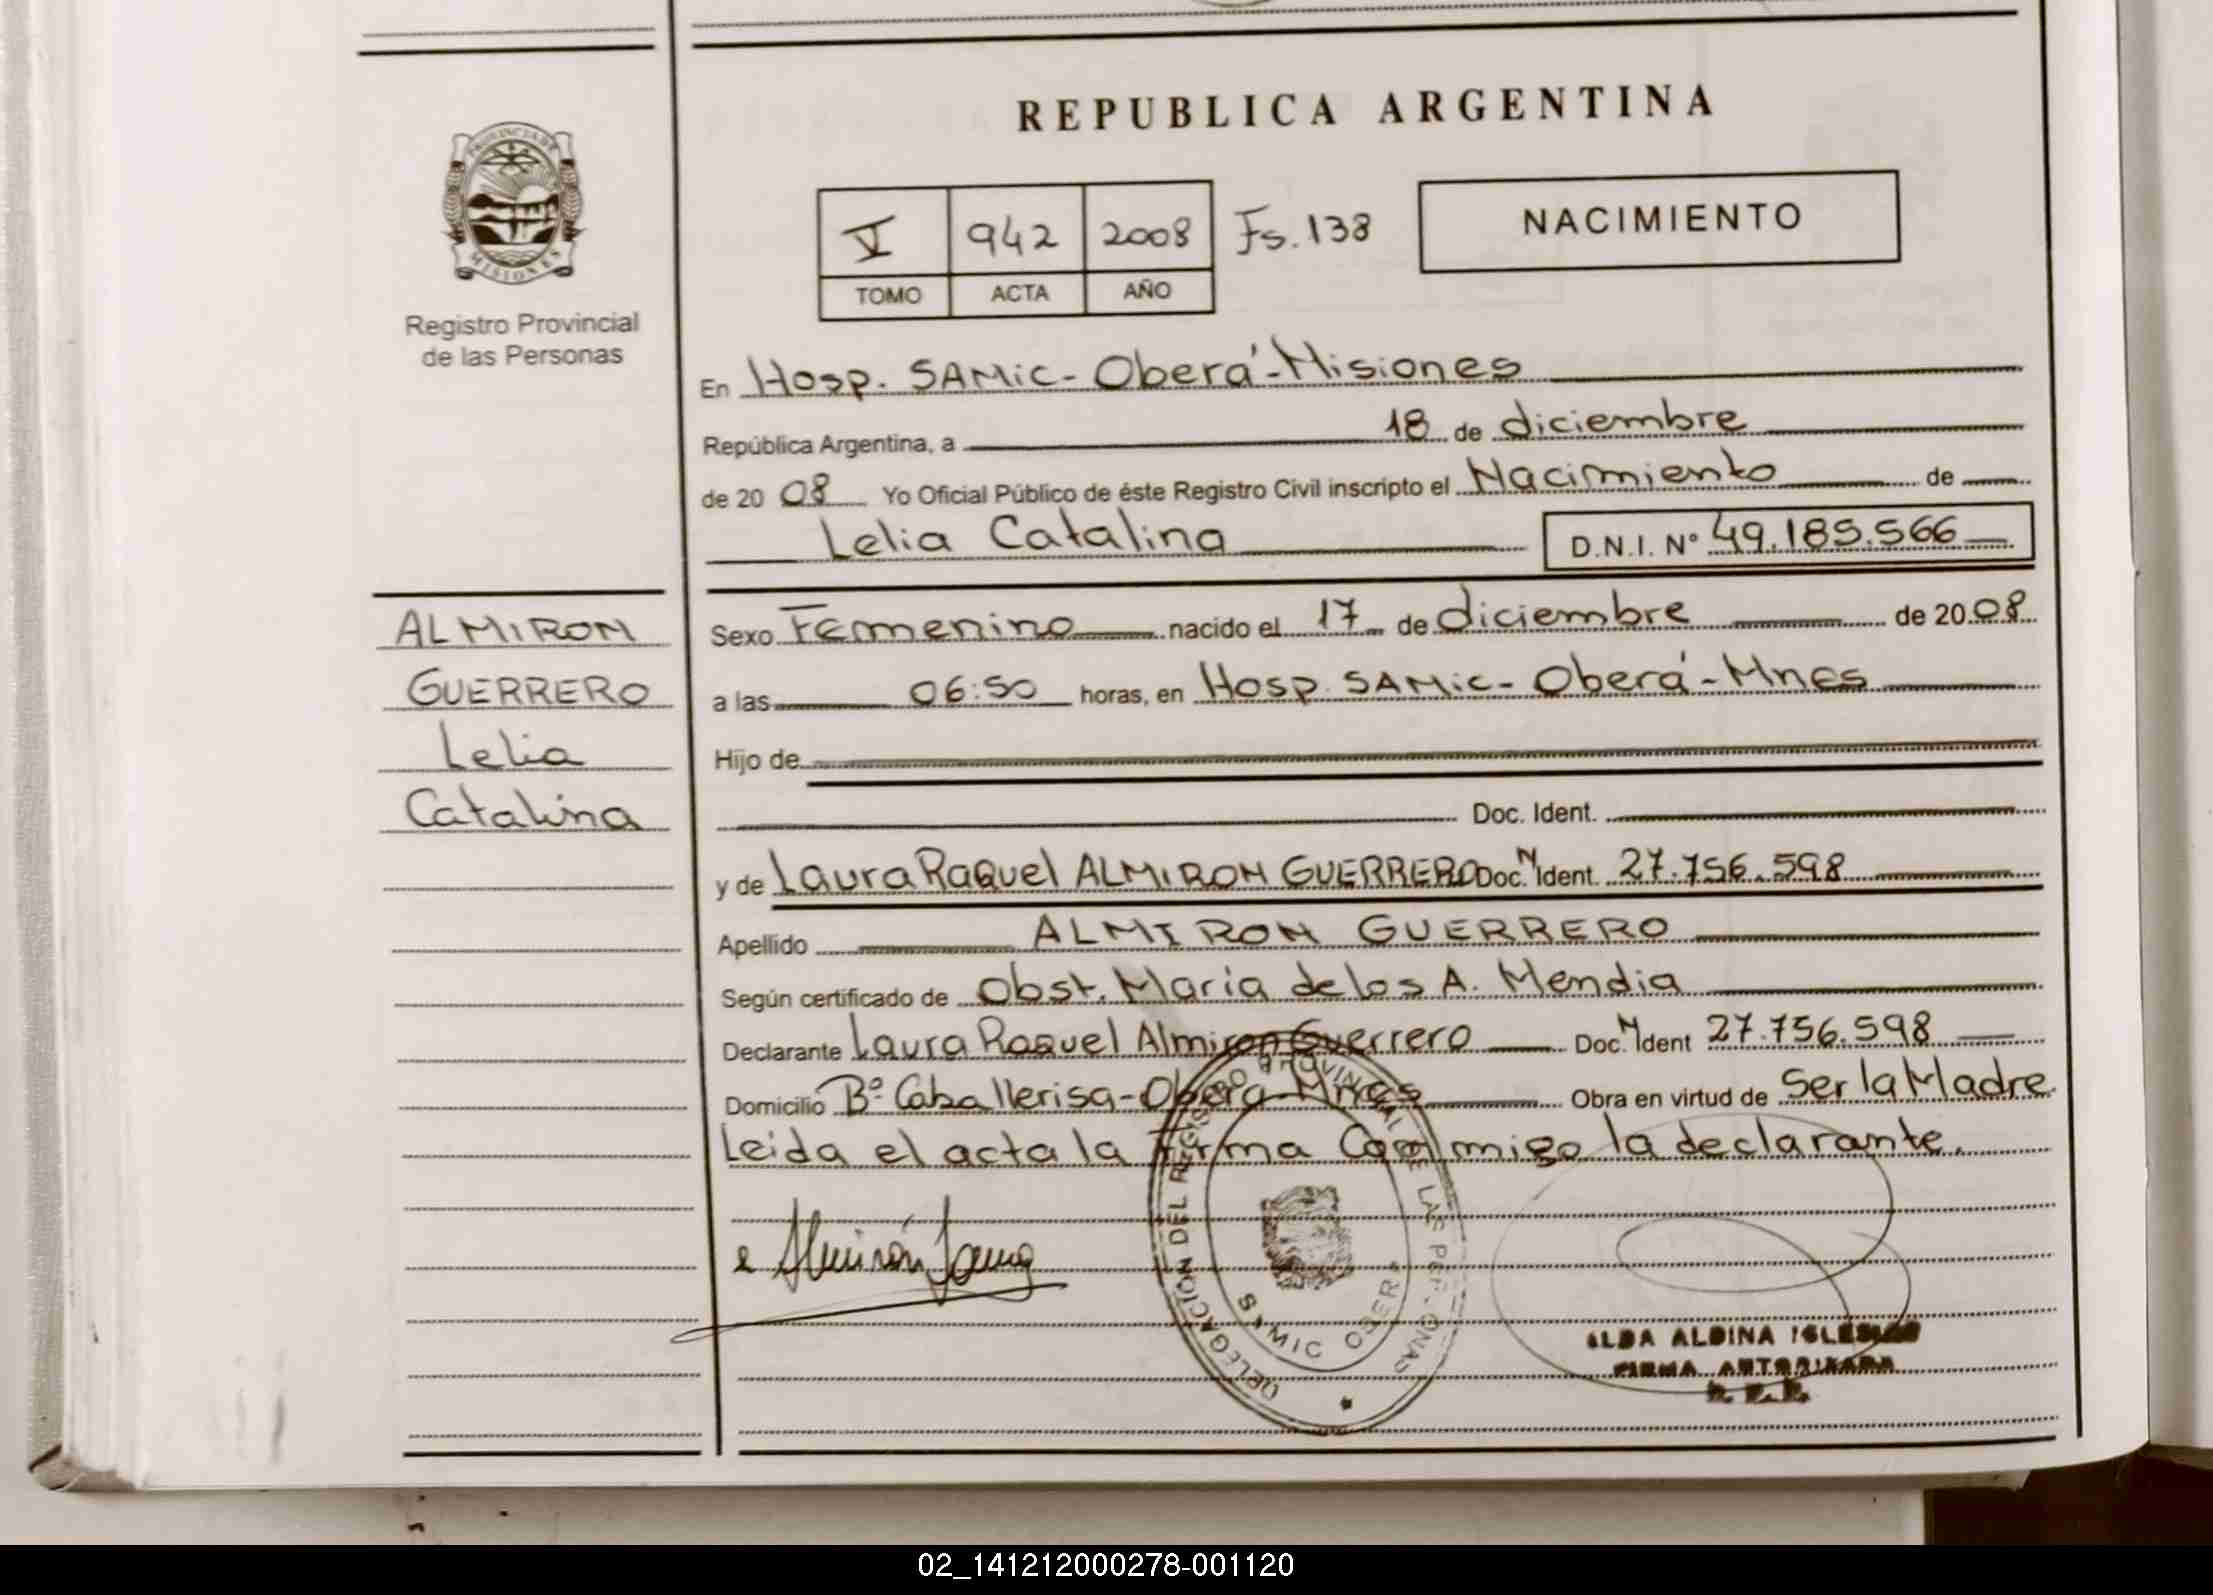 REPUBLICA ARGENTINA
PROVINCIA DE
MISIONES
Registro Provincial
de las Personas
V 942 2008 Fs. 138
TOMO ACTA AÑO
NACIMIENTO
En Hosp. SAMic - Oberá - Misiones
República Argentina, a 18 de diciembre
de 20 08 Yo Oficial Público de éste Registro Civil inscripto el Nacimiento de
Lelia Catalina D.N.I. N° 49.185.566
ALMIRON
GUERRERO
Lelia
Catalina
Sexo Femenino nacido el 17 de diciembre de 20 08
a las 06:50 horas, en Hosp. SAMic - Oberá - Mnes
Hijo de
Doc. Ident.
y de Laura Raquel ALMIRON GUERRERO Doc. N Ident. 27.756.598
Apellido ALMIRON GUERRERO
Según certificado de Obst. María de los A. Mendia
Declarante Laura Raquel Almiron Guerrero Doc. N Ident 27.756.598
Domicilio B° Caballerisa - Oberá - Mnes Obra en virtud de Ser la Madre.
Leida el acta la firma Conmigo la declarante.
Almirón Laura
DELEGACIÓN DEL REGISTRO PROVINCIAL DE LAS PERSONAS
SAMIC OBERA
ALBA ALBINA IGLESIAS
FIRMA AUTORIZADA
02_141212000278-001120